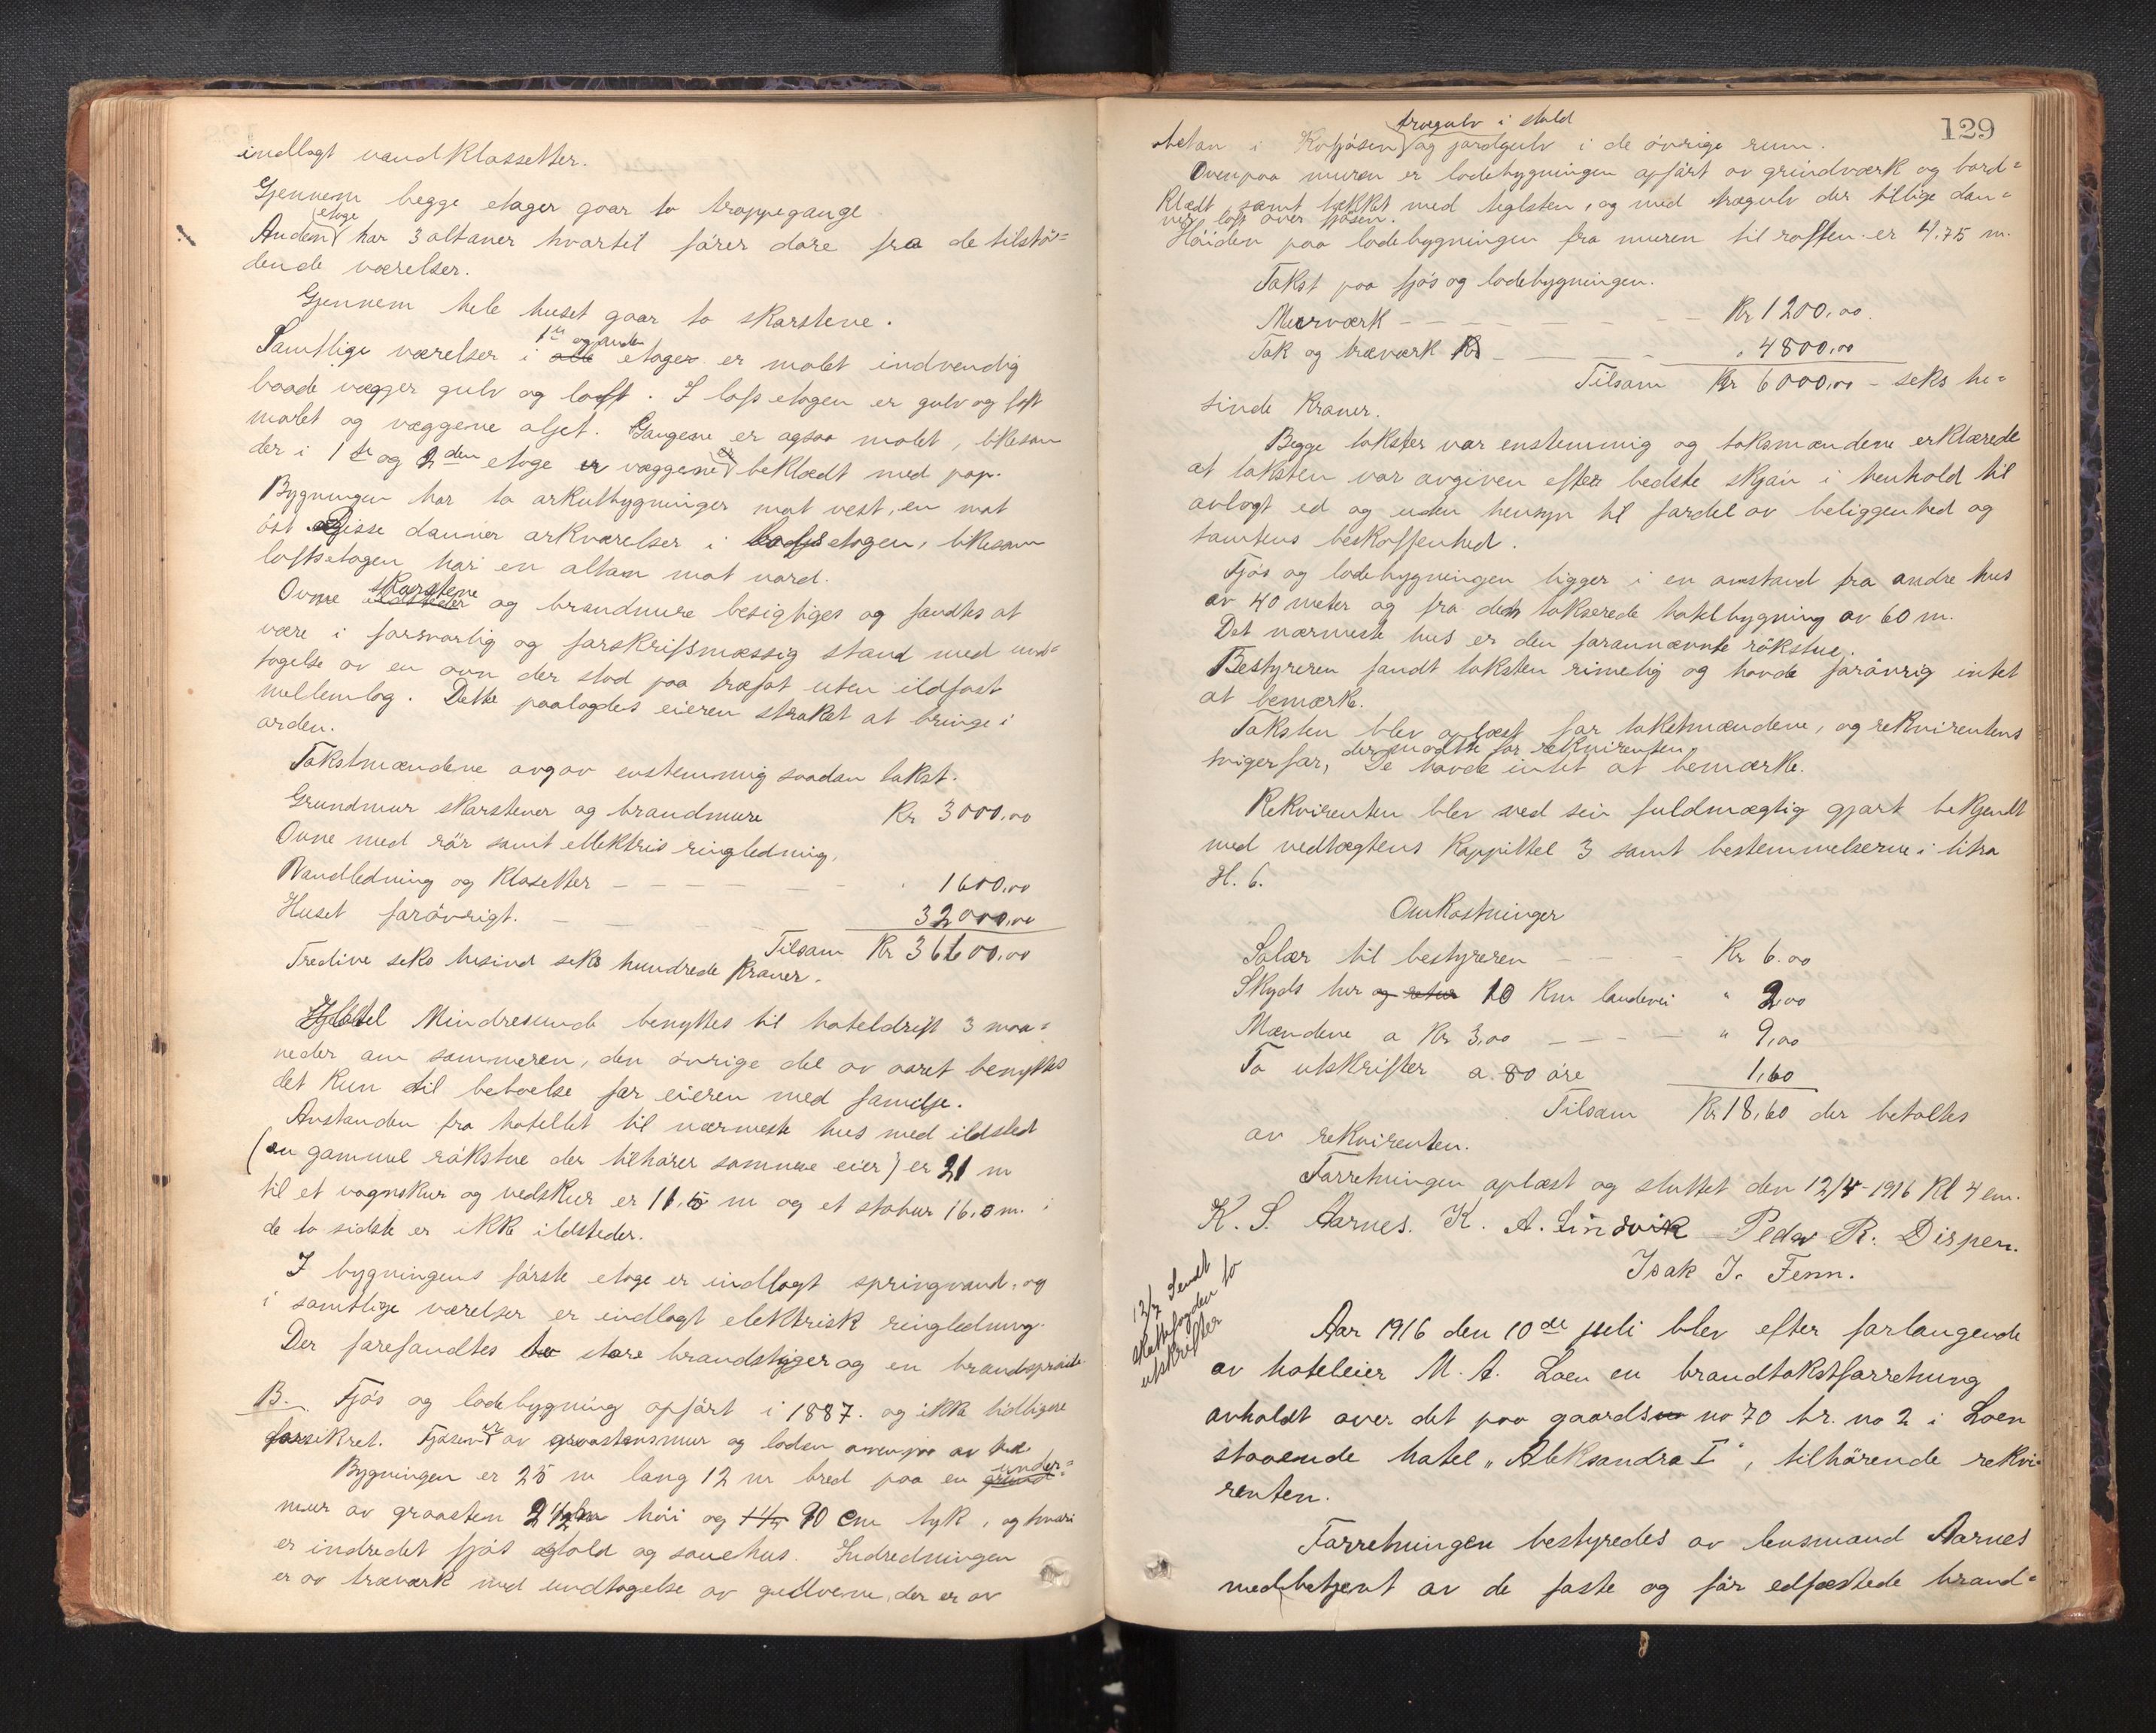 indlagt vandklossetter.
Gjennem begge etager gaar to trappegange
Anden etage har 3 altaner hvortil fører døre fra de tilstø=
dende værelser.
Gjennem hele huset gaar to skarstene.
Samtlige værelser i 1ste og anden etager er malet indvendig
baade vægger gulv og loft. I lofsetagen er gulv og loft
malet og væggene oljet. Gangene er ogsaa malet, likesom
der i 1ste og 2den etage er væggene beklædt med pap.
Bygningen har to arkutbygninger mot vest, en mot
øst. Disse danner arkværelser i lofsetagen, likesom
loftsetagen har en altan mot nord.
Ovne skorstene og brandmure besigtiges og fandtes at
være i forsvarlig og forskrifsmæssig stand med und=
tagelse av en ovn der stod paa træfot uten ildfast
mellemlag. Dette paalagdes eieren strakst at bringe i
orden.
Takstmændene avgav enstemmig saadan takst.
Grundmur skarstener og brandmure Kr 3000,00
Ovne med rør samt ellektris ringledning,
Vandledning og Klosetter — — — 1600,00
Huset forøvrigt. — — 32000,00
Tilsam Kr 36600,00
Tredive seks tusind seks hundrede kroner.
Hotel Mindresunde benyttes til hoteldrift 3 maa=
neder om sommeren, den øvrige del av aaret benyttes
det kun til beboelse for eieren med familje.
Avstanden fra hotellet til nærmeste hus med ildsted
(en gammel røkstue der tilhører samme eier) er 21 m
til et vognskur og vedskur er 11.5 m og et stabur 16.0 m. i
de to sidste er ikke ildsteder.
I bygningens første etage er indlagt springvand, og
i samtlige værelser er indlagt elektrisk ringledning.
Der forefandtes to store brandstiger og en brandsprøite
B. Fjøs og lodebygning opført i 1887. og ikke tidligere
forsikret. Fjøsen er av graastensmur og loden ovenpaa av træ
Bygningen er 25 m lang 12 m bred paa en under=
mur av graasten 2 1/2 m høi og 90 cm tyk, og hvori
er indredet fjøs stald og sauehus. Indredningen
er av træværk med undtagelse av gulvene, der er av
129
betan i Kofjøsen trægulv i stald og jordgulv i de øvrige rum.
Ovenpaa muren er lodebygningen opført av grindværk og bord=
klædt, samt tækket med teglsten, og med trægulv der tillige dan=
ner loft over fjøsen.
Høiden paa lodebygningen fra muren til raften er 4.75 m.
Takst paa fjøs og lodebygningen.
Muerværk — — — Kr 1200,00
Tak og træværk — — — " 4800,00
Tilsam Kr 6000,00 - seks tu=
sinde Kroner.
Begge takster var enstemmig og taksmændene erklærede
at taksten var avgiven efter bedste skjøn i henhold til
avlagt ed og uden hensyn til fordel av beliggenhed og
tomtens beskaffenhed.
Fjøs og lodebygningen ligger i en avstand fra andre hus
av 40 meter og fra den takserede hotelbygning av 60 m.
Det nærmeste hus er den forannævnte røkstue.
Bestyreren fandt taksten rimelig og havde forøvrig intet
at bemærke.
Taksten blev oplæst for takstmændene, og rekvirentens
svigerfar, der mødte for rekvirenten. De havde intet at bemærke.
Rekvirenten blev ved sin fuldmægtig gjort bekjendt
med vedtægtens Kappittel 3 samt bestemmelserne i litra
H. 6.
Omkostninger
Salær til bestyreren — — Kr 6.00
Skyds her og retur 10 Km landevei " 2,00
Mændene a Kr 3,00 — — — " 9,00
To utskrifter a. 80 øre 1,60
Tilsam Kr 18,60 der betaltes
av rekvirenten.
Forretningen oplæst og sluttet den 12/4-1916 Kl 4 em.
K. S. Aarnes. K. A. Lindvik Peder R. Dispen.
Isak J. Fenn.
12/7 Sendt
skattefogden to
utskrifter
Aar 1916 den 10de juli blev efter forlangende
av hoteleier M. A. Loen en brandtakstforretning
avholdt over det paa gaards no 70 br. no 2 i Loen
staaende hotel „Aleksandra I", tilhørende rekvi=
renten.
Forretningen bestyredes av lensmand Aarnes
medbetjent av de faste og før edfæstede brand=